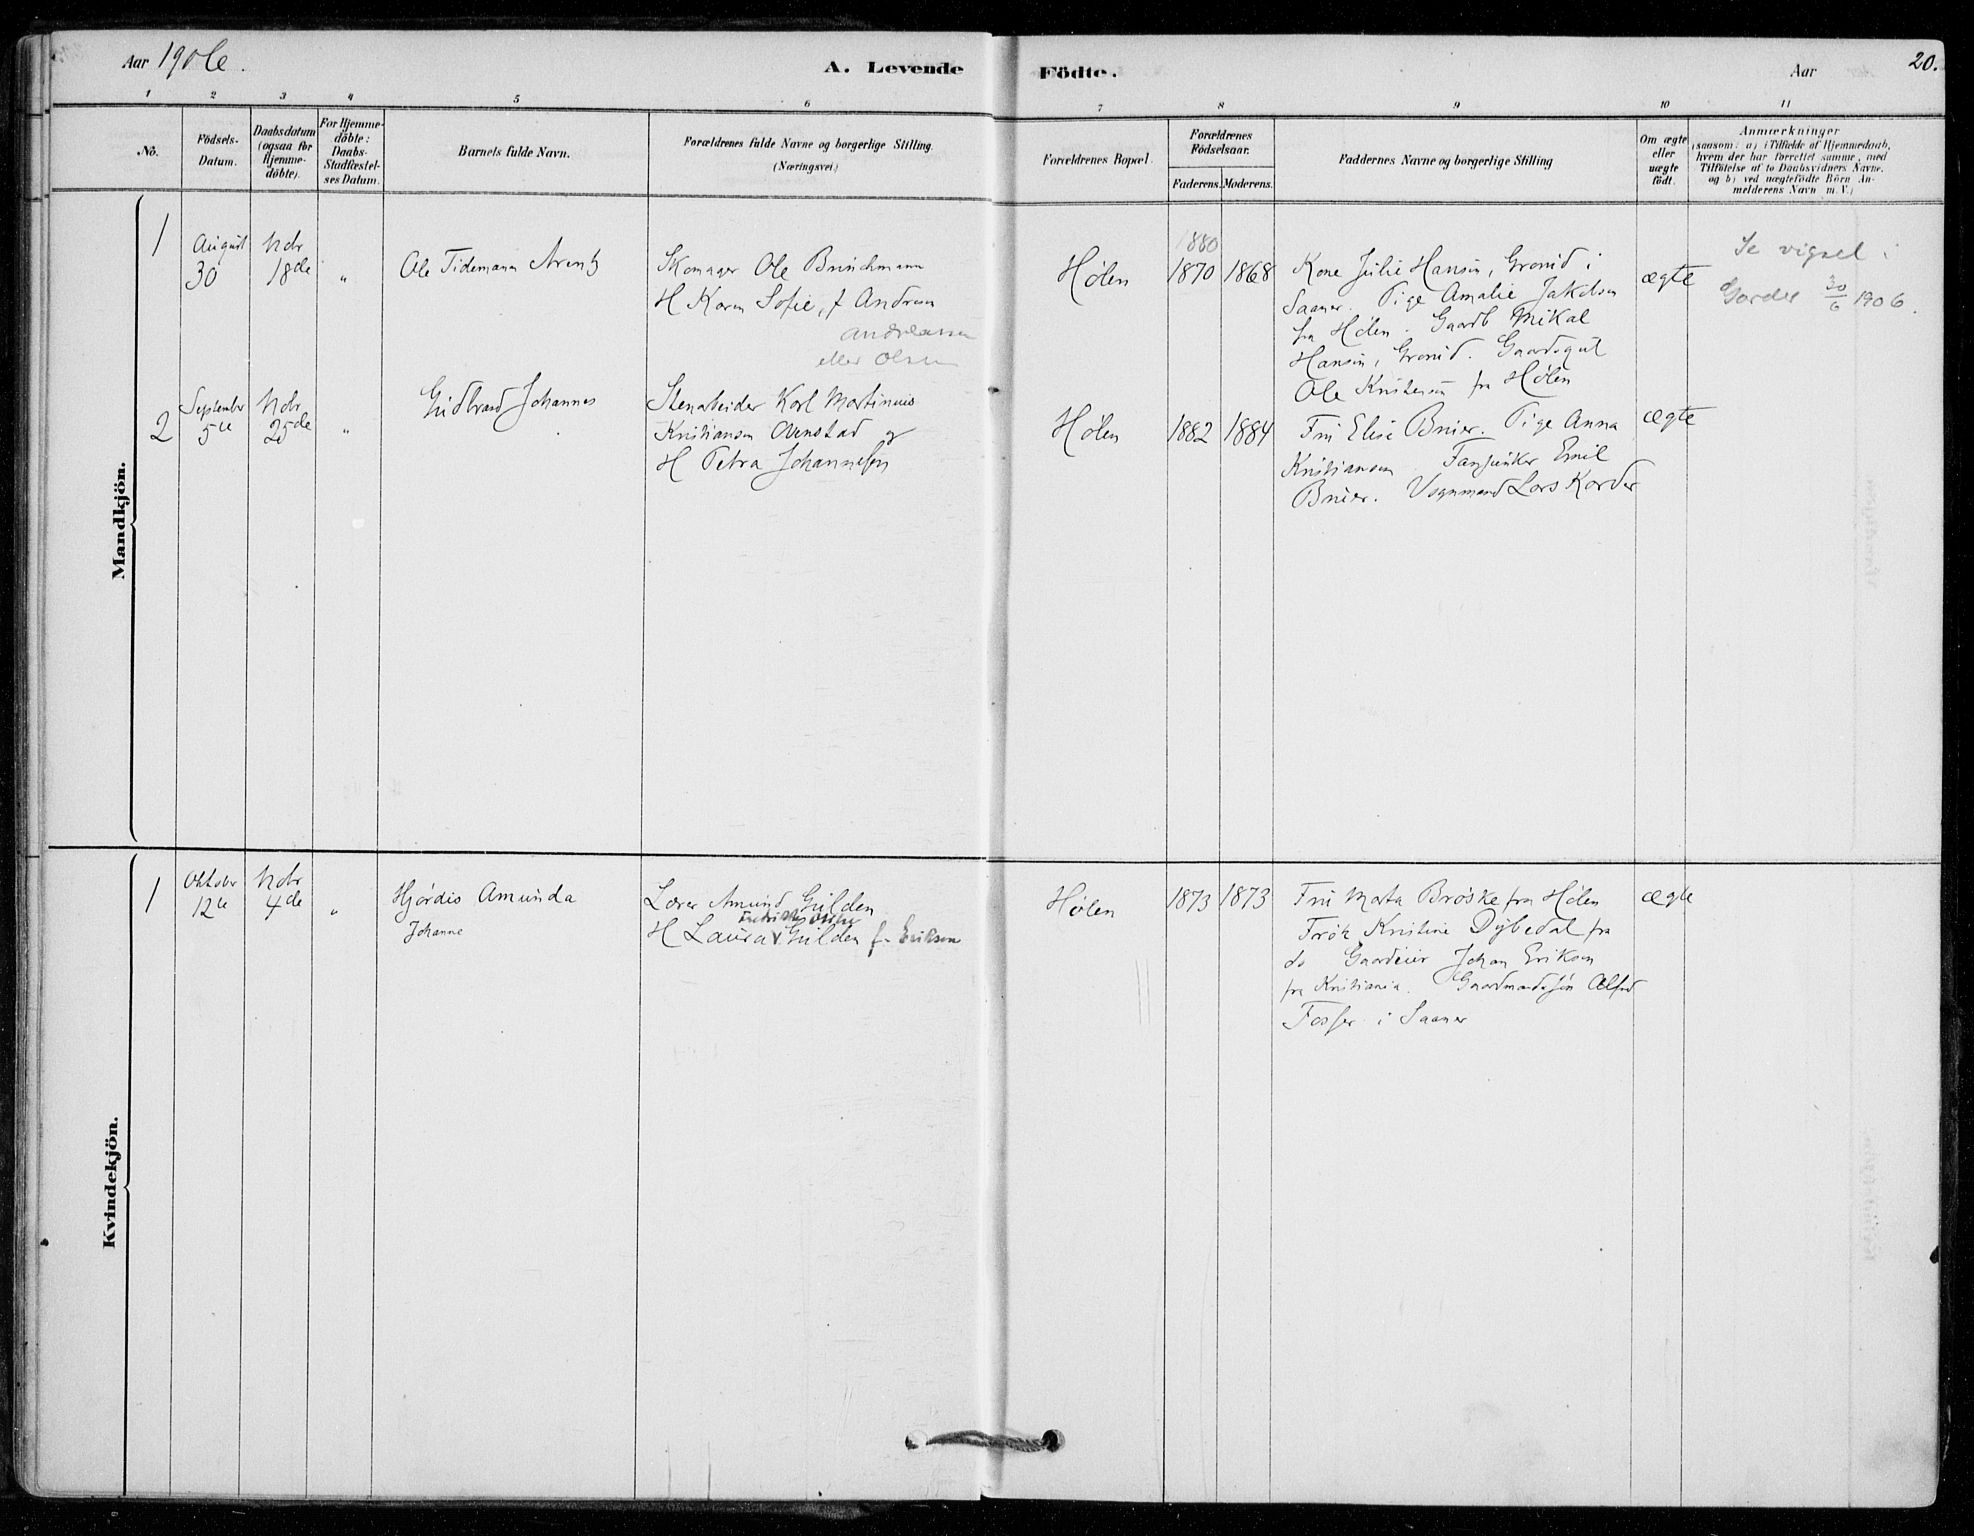 Aar 1906.
A. Levende Födte.
Aar
20.
1 2 3 4 5 6 7 8 9 10 11
No.
Födsels-Datum.
Daabsdatum (ogsaa for Hjemme-döbte).
For Hjemme-döbte: Daabs-Stadfæstel-ses Datum.
Barnets fulde Navn.
Forældrenes fulde Navne og borgerlige Stilling.
(Næringsvei.)
Forældrenes Bopæl.
Forældrenes Födselsaar.
Faderens. Moderens.
Faddernes Navne og borgerlige Stilling
Om ægte eller uægte födt.
Anmærkninger
(saasom: a) i Tilfælde af Hjemmedaab,
hvem der har forrettet samme, med
Tilföielse af to Daabsvidners Navne.
og b) ved uægtefödte Börn An-
melderens Navn m. V.)
Mandkjön.
1
August
30
Nobr
18de
"
Ole Tidemann Arentz
Skomager Ole Brinchmann
H Karen Sofie, f Andresen
Andreassen
eller Olsen
Hølen
1880
1870
1868
Kone Julie Hansen, Grønid i
Saaner. Pige Amalie Jakobsen
fra Hølen. Gaardb Mikal
Hansen, Grønid. Gaardsgut
Ole Kristensen fra Hølen
ægte
Se vigsel i
Garder 30/6 1906.
2
September
5te
Nobr
25de
"
Gudbrand Johannes
Stenarbeider Karl Martinius
Kristiansen Ørnstad og
H Petra Johannesen
Hølen
1882
1884
Fru Elise Bruer. Pige Anna
Kristiansen Fanjunker Emil
Bruer. Vognmand Lars Korder
ægte
Kvindekjön.
1
Oktober
12te
Nobr
4de
"
Hjørdis Amunda
Johanne
Lærer Amund Gulden
H Laura Gulden f. Eriksen
Hølen
1873
1873
Fru Marta Brøske fra Hølen
Frøk Kristine Dybedal fra
do Gaardeier Johan Eriksen
fra Kristiania. Gaardmandssøn Alfred
Fosser i Saaner
ægte